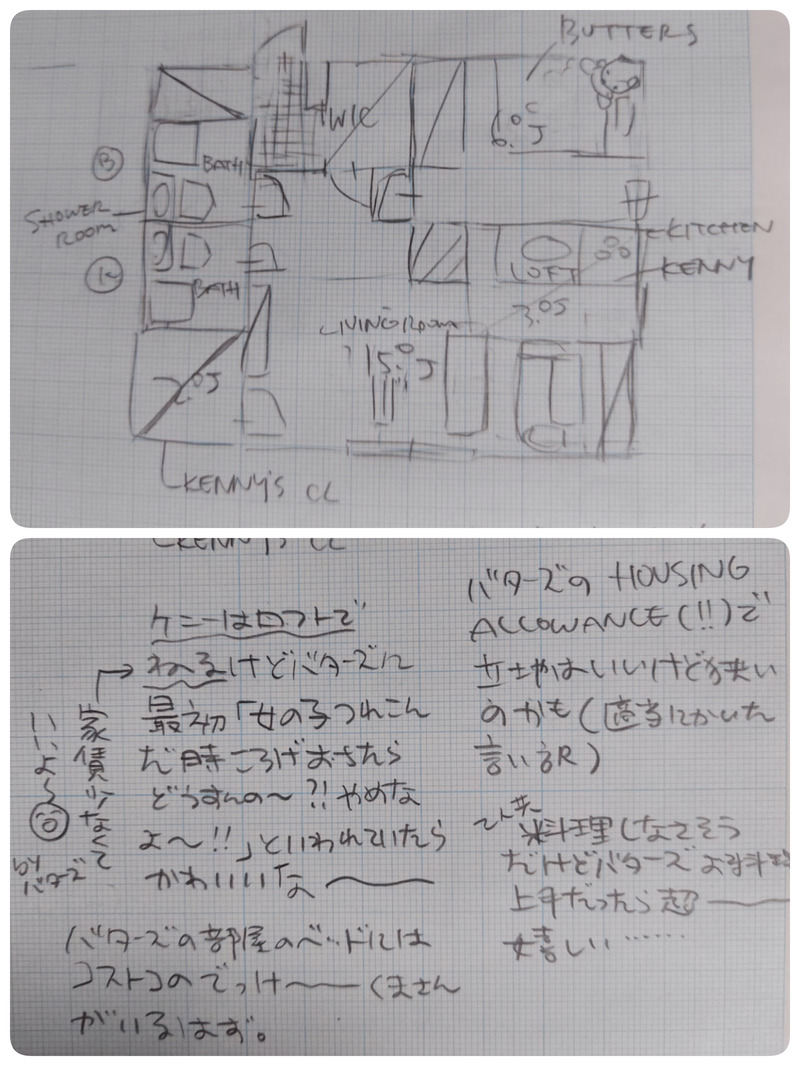 BUTTERS
WIC
6.0J
B
BATH
SHOWER
ROOM
K
BATH
KITCHEN
KENNY
LOFT
3.0J
LIVING ROOM
15.0J
2.0J
KENNY'S CL
KENNY'S CL
ケニーはロフトで
ねるけどバターズに
最初「女の子つれこん
だ時ころげおちたら
どうすんの〜?!やめな
よ〜!!」といわれていたら
かわいいな〜
家賃少なくて
いいよ〜
by
バターズ
バターズの部屋のベッドには
コストコのでっけ〜くまさん
がいるはず。
バターズの HOUSING
ALLOWANCE(!!)で
立士やはいいけど狭い
のかも(適当にかいた
言い訳)
2人共
料理しなさそう
だけどバターズお料理
上手だったら超
嬉しい……